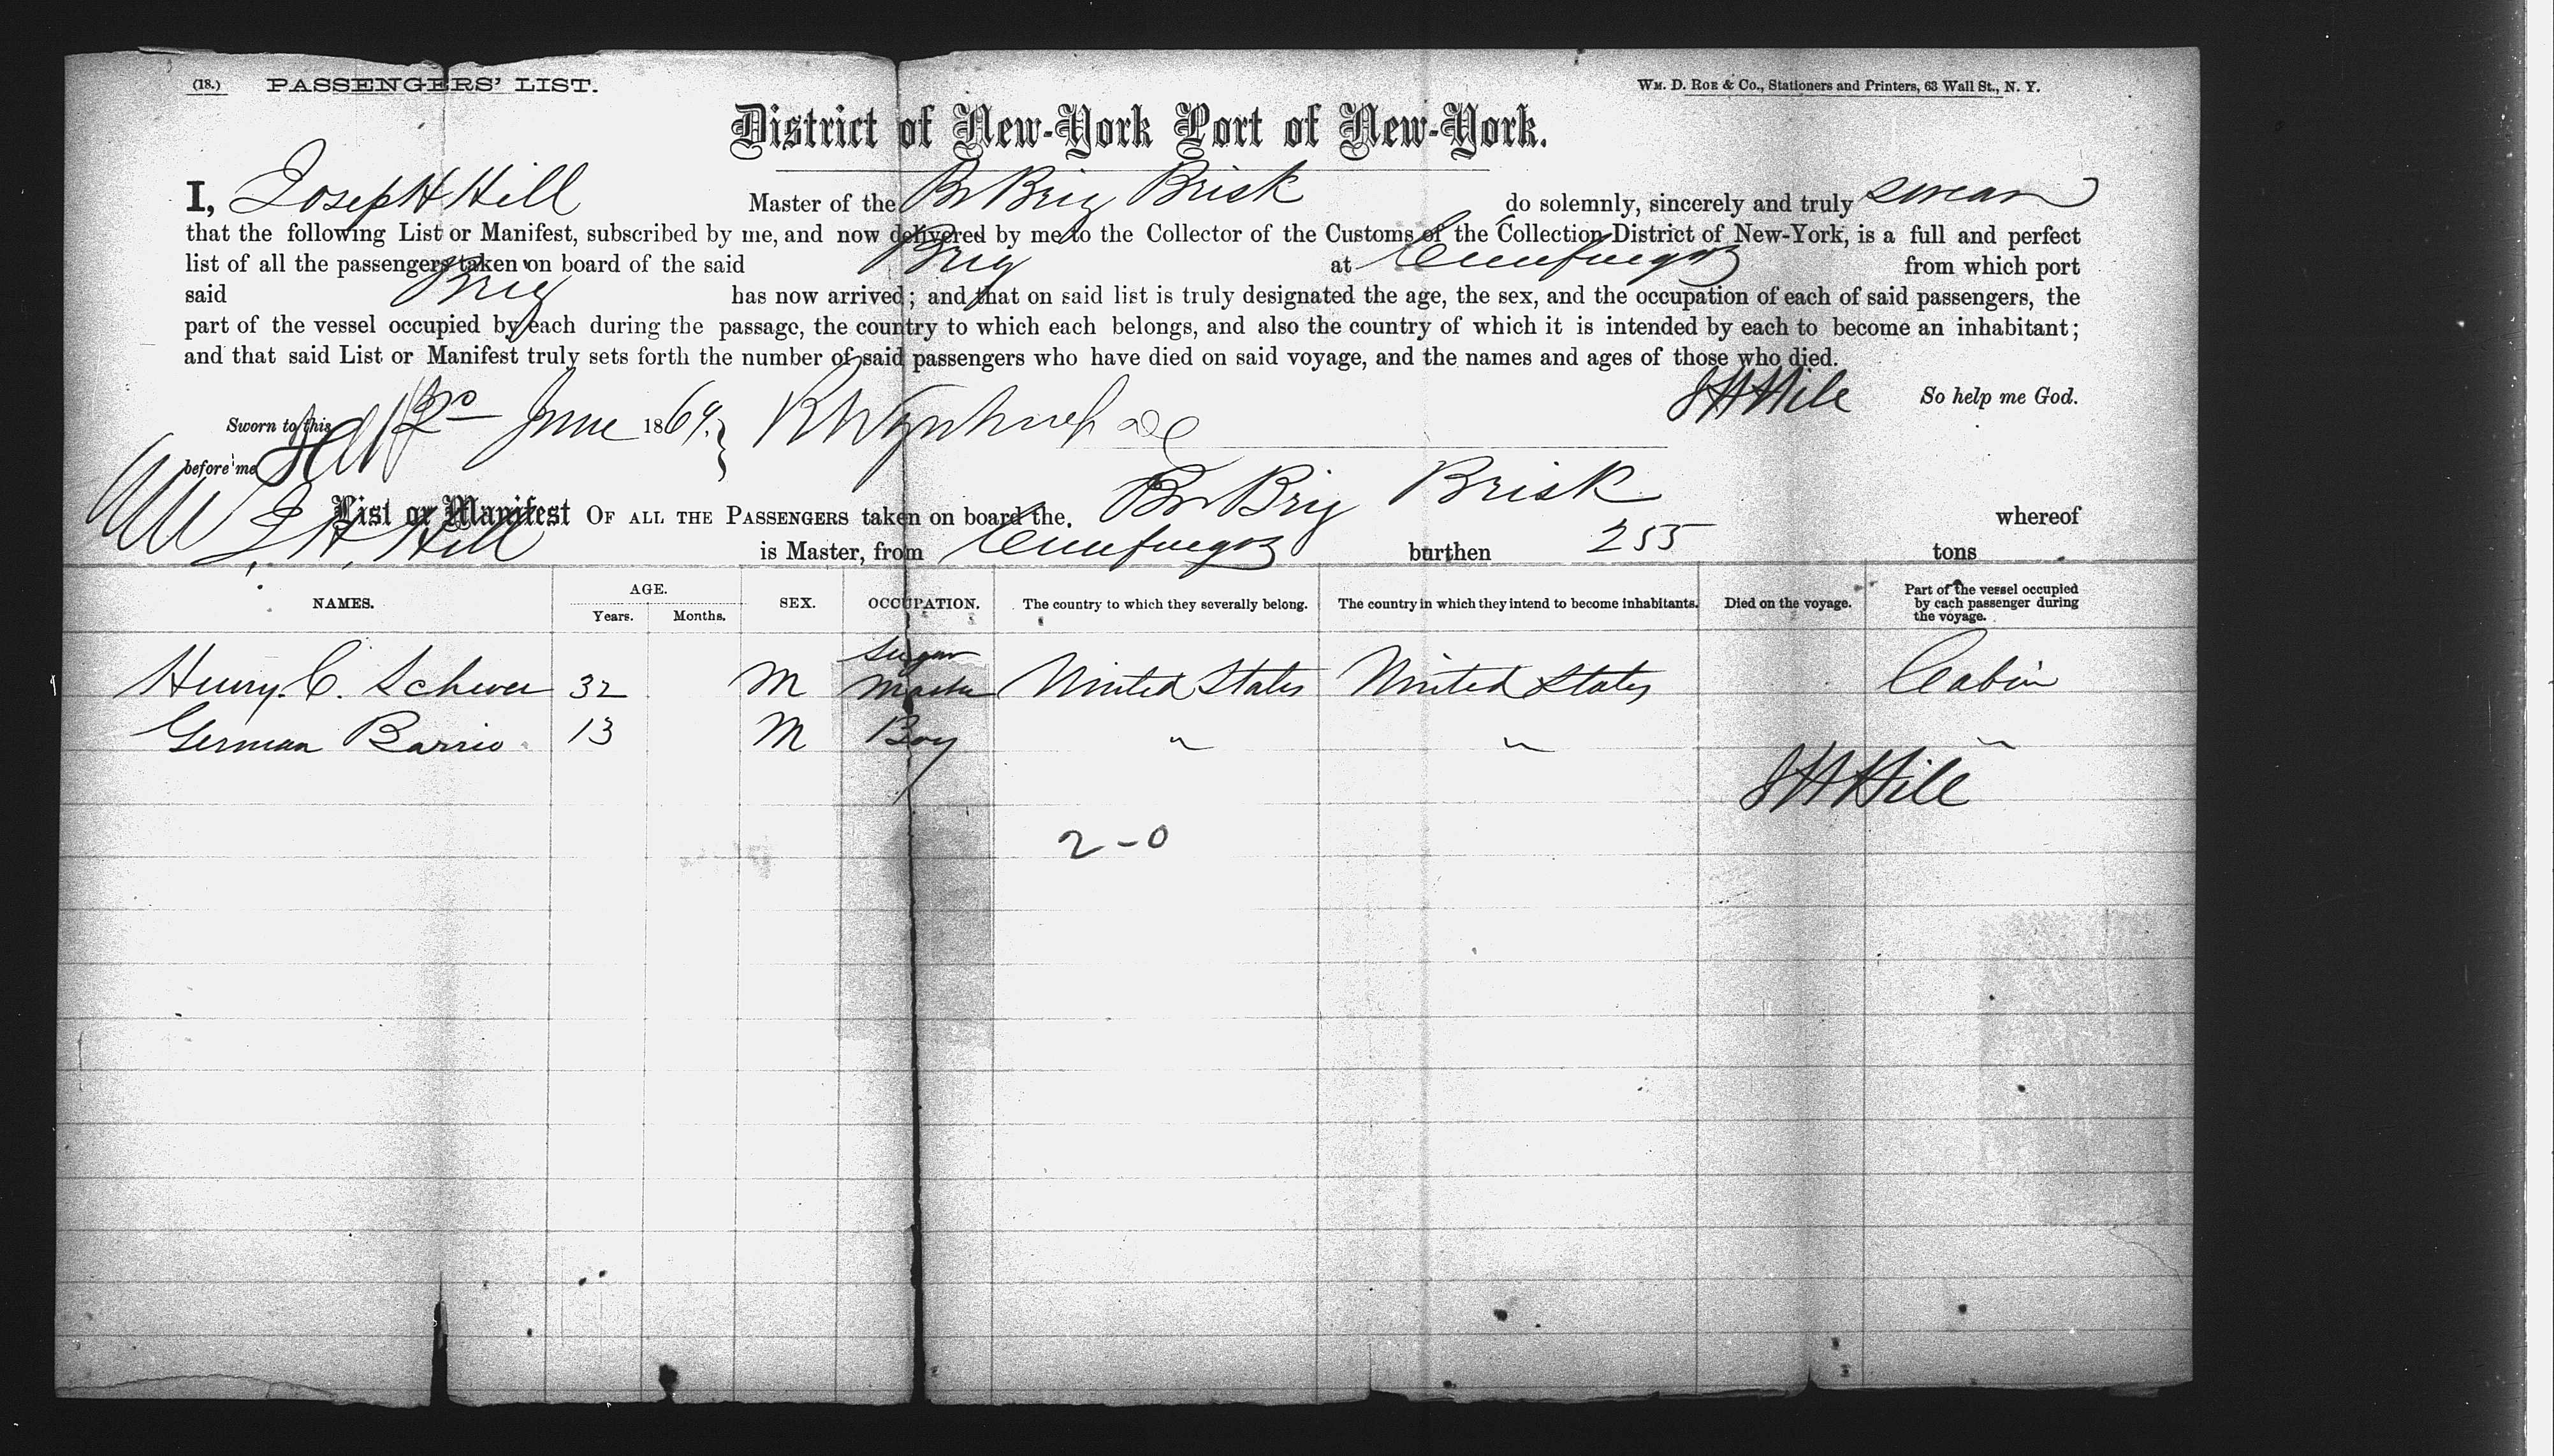 (18.) PASSENGERS' LIST.
Wm. D. Roe & Co., Stationers and Printers, 63 Wall St., N. Y.
District of New-York Port of New-York.
I, Joseph H Hill Master of the Br Brig Brisk do solemnly, sincerely and truly swear
that the following List or Manifest, subscribed by me, and now delivered by me to the Collector of the Customs of the Collection District of New-York, is a full and perfect
list of all the passengers taken on board of the said Brig at Cienfuegos from which port
said Brig has now arrived; and that on said list is truly designated the age, the sex, and the occupation of each of said passengers, the
part of the vessel occupied by each during the passage, the country to which each belongs, and also the country of which it is intended by each to become an inhabitant;
and that said List or Manifest truly sets forth the number of said passengers who have died on said voyage, and the names and ages of those who died.
J H Hill So help me God.
Sworn to this June 1869.
before me
List or Manifest OF ALL THE PASSENGERS taken on board the Br Brig Brisk whereof
J. H. Hill is Master, from Cienfuegos burthen 255 tons
NAMES. AGE. Years. Months. SEX. OCCUPATION. The country to which they severally belong. The country in which they intend to become inhabitants. Died on the voyage. Part of the vessel occupied by each passenger during the voyage.
Henry C. 32 M Sugar United States United States Cabin
German Barrio 13 M Boy " " "
J H Hill
2-0